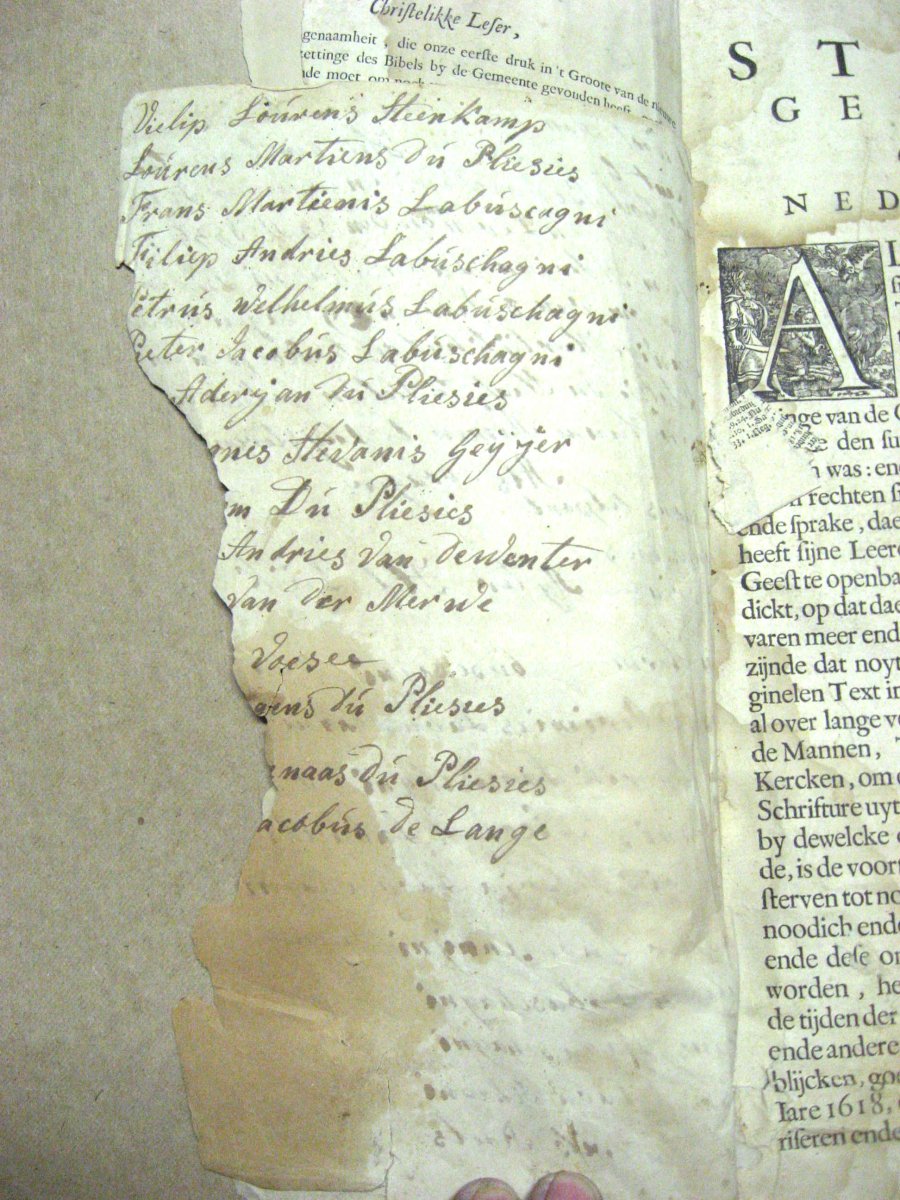 Christelikke Leser,
genaamheit, die onze eerste druk in 't Groote van de nieuwe
zettinge des Bibels by de Gemeente gevonden heeft
nde moet om noch
Vielip Lourens Steenkamp
Lourens Martiens dú Pliesies
Frans Martienis Labúscagni
Filiep Andries Labúschagni
Petrús Welhelmús Labúschagni
Pieter Jacobús Labúschagni
Aderjan dú Pliesies
nnes Stevanis Geÿÿer
em Dú Pliesies
Andries van dewenter
van der Merwe
Voesee
rens dú Pliesies
naas dú Pliesies
acobús de Lange
S T
G E
N E D
A
inge van de
den su
n was: end
rechten s
ende sprake, dae
heeft sijne Leere
Geest te openba
dickt, op dat dae
varen meer ende
zijnde dat noyt
ginelen Text in
al over lange ve
de Mannen,
Kercken, om
Schrifture uyt
by dewelcke
de, is de voort
sterven tot no
noodich ende
ende dese on
worden, he
de tijden der
ende andere
blijcken, goe
Iare 1618,
riseren ende